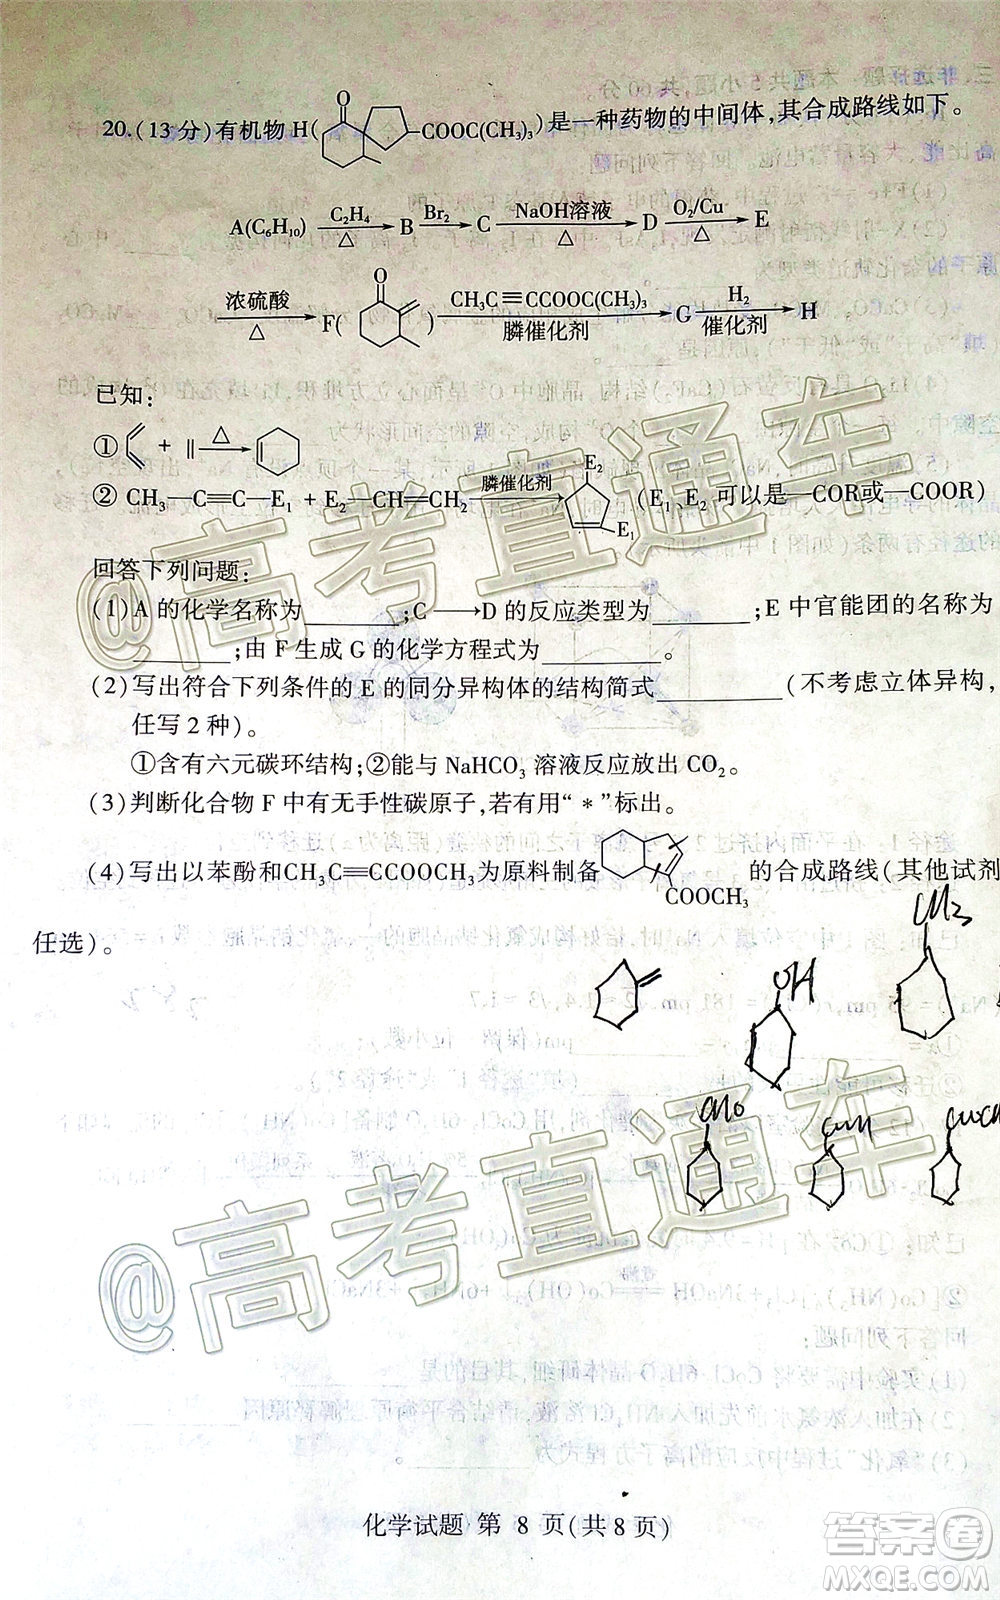 20.(13分)有机物H( O COOC(CH₃)₃ )是一种药物的中间体,其合成路线如下。
A(C₆H₁₀) C₂H₄ △ B Br₂ C NaOH溶液 △ D O₂/Cu △ E
浓硫酸 △ F( O ) CH₃C≡CCOOC(CH₃)₃ 膦催化剂 G H₂ 催化剂 H
已知:
① + ‖ △
② CH₃—C≡C—E₁ + E₂—CH=CH₂ 膦催化剂 E₂ E₁ (E₁、E₂ 可以是—COR或—COOR)
回答下列问题:
(1)A 的化学名称为______;C⟶D 的反应类型为______;E 中官能团的名称为
______;由 F 生成 G 的化学方程式为______。
(2)写出符合下列条件的 E 的同分异构体的结构简式______(不考虑立体异构,
任写 2 种)。
①含有六元碳环结构;②能与 NaHCO₃ 溶液反应放出 CO₂。
(3)判断化合物 F 中有无手性碳原子,若有用“*”标出。
(4)写出以苯酚和CH₃C≡CCOOCH₃为原料制备 COOCH₃ 的合成路线(其他试剂
任选)。
CH₃
OH
CHO
COOH
@高考直通车
@高考直通车
化学试题 第 8 页(共8页)
答案圈
MXQE.COM